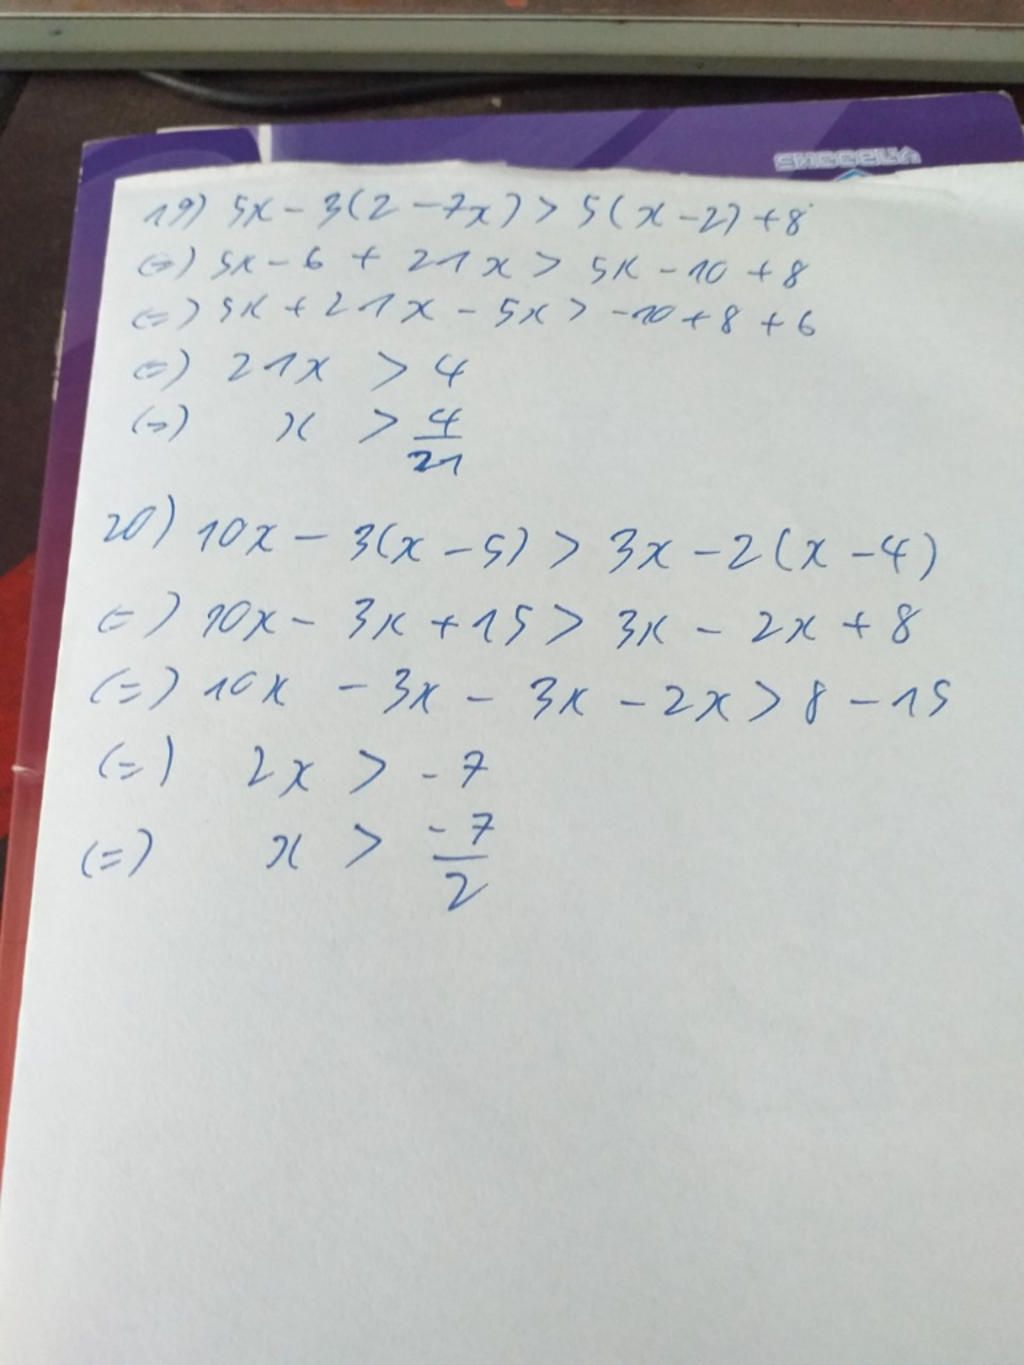 19) 5x - 3(2 - 7x) > 5(x - 2) + 8
(=) 5x - 6 + 21x > 5x - 10 + 8
(=) 5x + 21x - 5x > -10 + 8 + 6
(=) 21x > 4
(=) x > 4/21
20) 10x - 3(x - 5) > 3x - 2(x - 4)
(=) 10x - 3x + 15 > 3x - 2x + 8
(=) 10x - 3x - 3x - 2x > 8 - 15
(=) 2x > -7
(=) x > -7/2